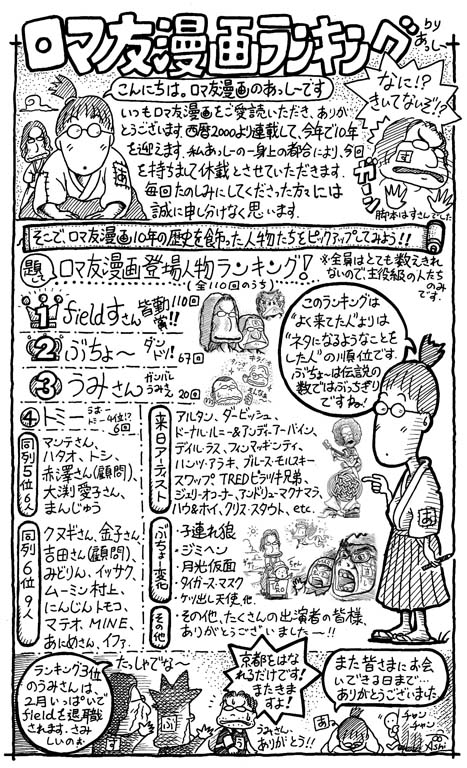 ロマ友漫画ランキング
by あっしー
こんにちは。ロマ友漫画のあっしーです
いつもロマ友漫画をご愛読いただき、ありが
とうございます 西暦2000より連載して、今年で10年
を迎えます。私あっしーの一身上の都合により、今回
を持ちまして休載とさせていただきます。
毎回たのしみにしてくださった方々には
誠に申し分けなく思います.
なに!?
きいてないぞ!?
ガーン
脚本はすさんでした
そこで、ロマ友漫画10年の歴史を飾った人物たちをピックアップしてみよう!!
題して
ロマ友漫画登場人物ランキング!
(全110回のうち)
※全員はとても数えきれ
ないので主役級の人たち
のみです.
1 fieldすさん 皆勤賞!! 110回
2 ぶちょ〜 ダンドリ! 67回
3 うみさん ガンバレうみさん 20回
4 トミー 6回
同列5位
マンテさん、
ハタオ、トシ、
赤澤さん(顧問)、
大渕愛子さん、
まんじゅう
同列6位9人
クヌギさん、金子さん!
吉田さん(顧問)、
みどりん、イッサク、
ムーミン村上、
にんじんトモコ、
マテオ、MINE、
あにめさん、イファ
来日アーティスト
アルタン、ダービッシュ、
ドーナル・ルニー&アンディ・アーバイン、
デイル・ラス、フィンマッギンティ、
ハンツ・アラキ、ブルース・モルスキー
スワップ、TREDピラツキ兄弟、
ジェリ・オコーナ、アンドリュー・マクナマラ、
ハウ&ホイ、クリス・スタウト、etc.
ぶちょ〜変化
・子連れ狼
・ジミヘン
・月光仮面
・タイガースマスク
・ケツ出し天使、他.
その他
・その他、たくさんの出演者の皆様、
ありがとうございました〜!!
このランキングは
“よく来てた人”よりは
“ネタになるようなことを
した人”の順位です.
ぶちょ〜は伝説の
数ではぶっちぎり
ですね!
ランキング3位
のうみさんは、
2月いっぱいで
fieldを退職
されます. さみ
しいのぉ
たっしゃでな〜
京都をはな
れるだけです!
またきま
すよ!
うみさん、
ありがとう!!
また皆さまにお会
いできる日まで…
ありがとうございました
チャン
チャン